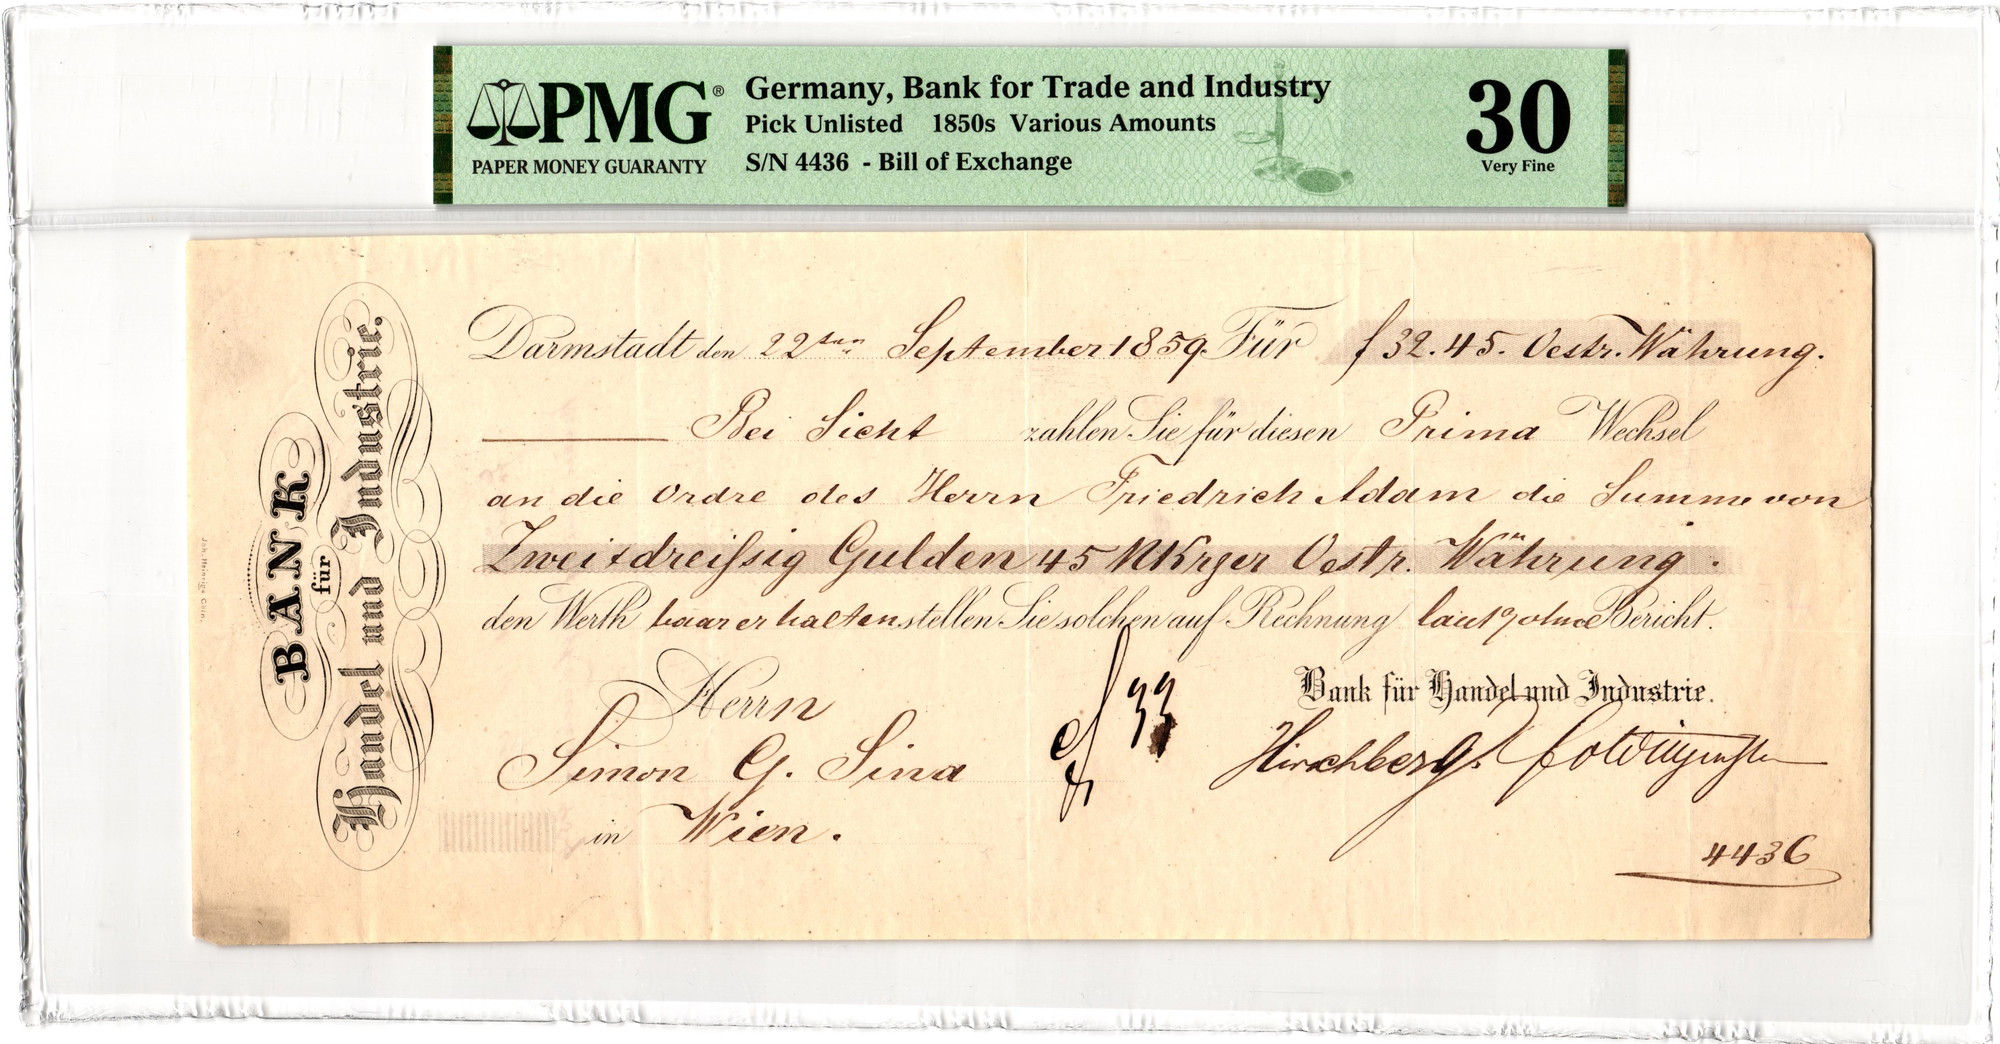 PMG®
PAPER MONEY GUARANTY
Germany, Bank for Trade and Industry
Pick Unlisted 1850s Various Amounts
S/N 4436 - Bill of Exchange
30
Very Fine
BANK
für
Handel und Industrie.
Joh. Heinrigs Cöln.
Darmstadt den 22ten September 1859. Für f 32.45. Oestr. Währung.
Bei Sicht zahlen Sie für diesen Prima Wechsel
an die Ordre des Herrn Friedrich Adam die Summe von
Zwei & dreißig Gulden 45 NKrzer Oestr. Währung.
den Werth baar erhalten stellen Sie solchen auf Rechnung laut Bericht.
Herrn
Simon G. Sina
in Wien.
33
Bank für Handel und Industrie.
Hirschberg
4436